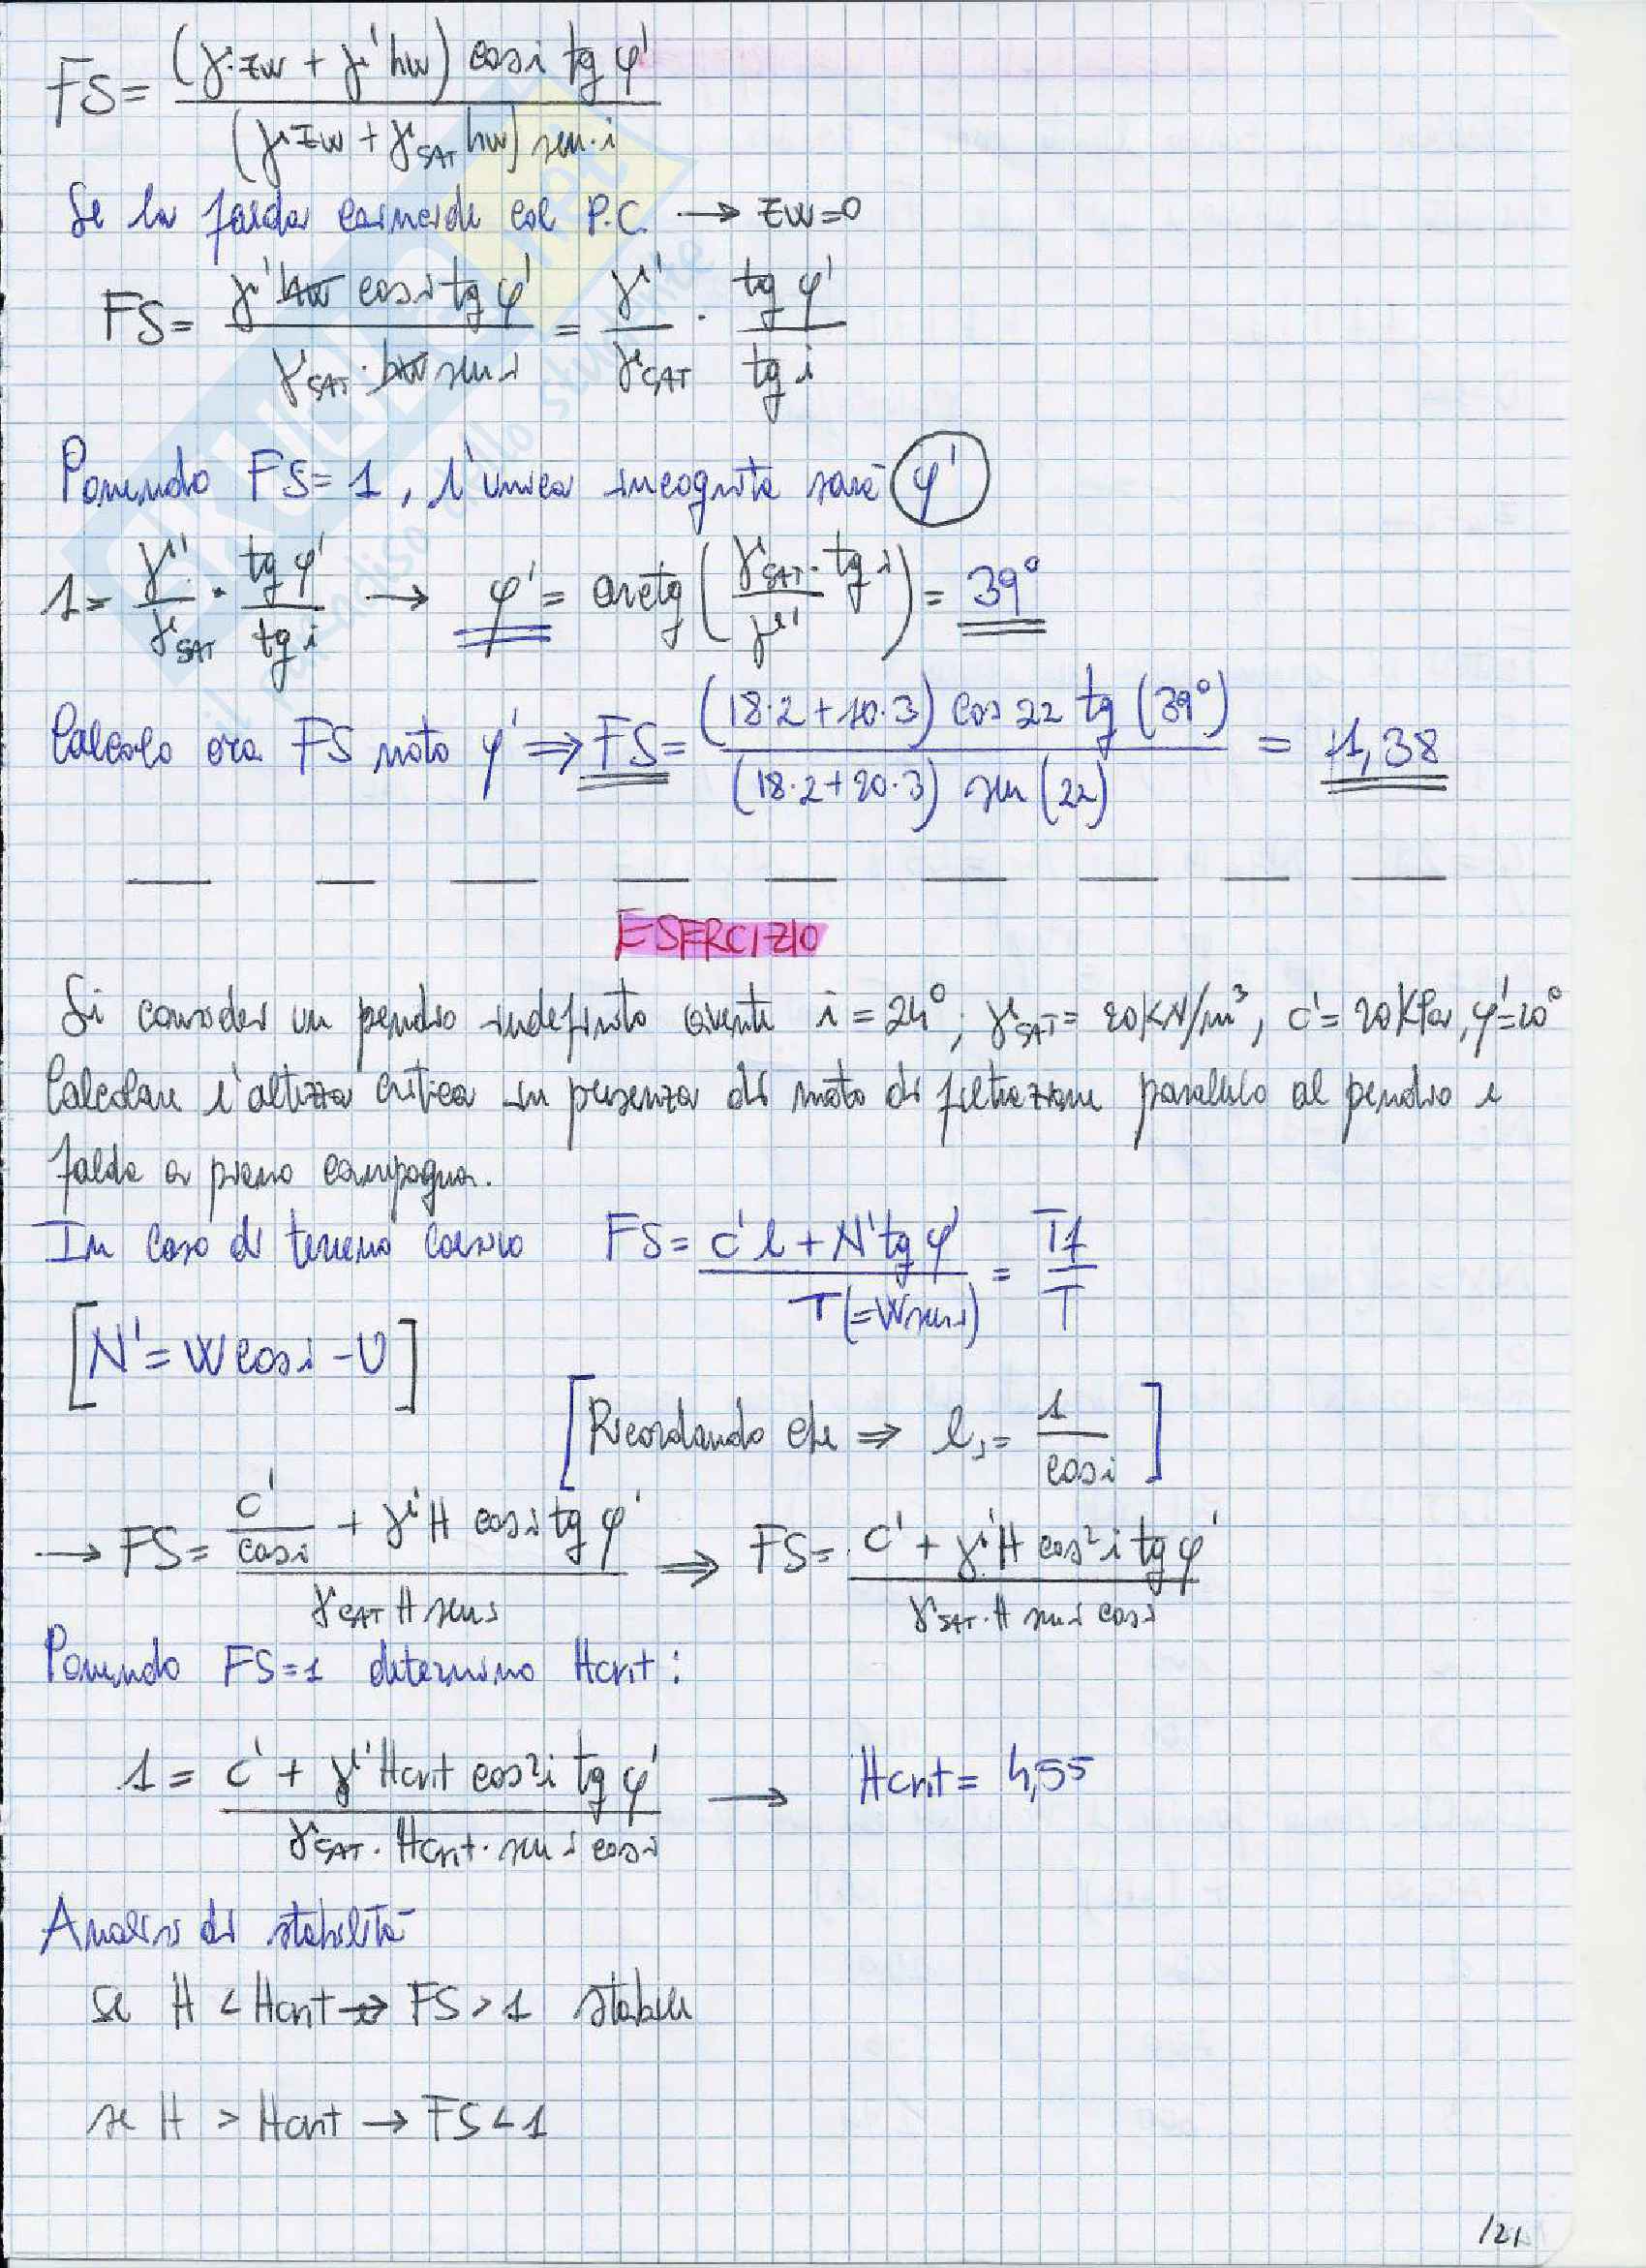 FS = (γ·zw + γ'hw) cosi tg φ' / (γ zw + γSAT hw) sen·i
Se la falda coincide col P.C. → zw=0
FS = γ' hw cosi tg φ' / γSAT · hw sen i = γ'/γSAT · tg φ'/tg i
Ponendo FS=1, l'unica incognita sarà φ'
1 = γ'/γSAT · tg φ'/tg i → φ' = arctg (γSAT · tg i / γ') = 39°
Calcolo ora FS noto φ' ⇒ FS = (18·2+10·3) cos 22 tg (39°) / (18·2+20·3) sen (22) = 1,38
ESERCIZIO
Si consideri un pendio indefinito avente i = 24°; γSAT = 20 KN/m³, c' = 20 KPa, φ'=20°
Calcolare l'altezza critica in presenza di moto di filtrazione parallelo al pendio e
falda a piano campagna.
In caso di terreno coesivo FS = c'l + N'tg φ' / T(=Wsen i) = Tf / T
[N' = W cosi - U]
[Ricordando che ⇒ l, = 1/cosi]
→ FS = (c'/cosi + γ'H cosi tg φ') / γSAT H sen i ⇒ FS = c' + γ'H cos²i tg φ' / γSAT·H sen i cosi
Ponendo FS=1 determino Hcrit :
1 = c' + γ'Hcrit cos²i tg φ' / γSAT · Hcrit · sen i cosi → Hcrit = 4,55
Analisi di stabilità
se H < Hcrit → FS > 1 stabile
se H > Hcrit → FS < 1
/21
il paradiso dello studente